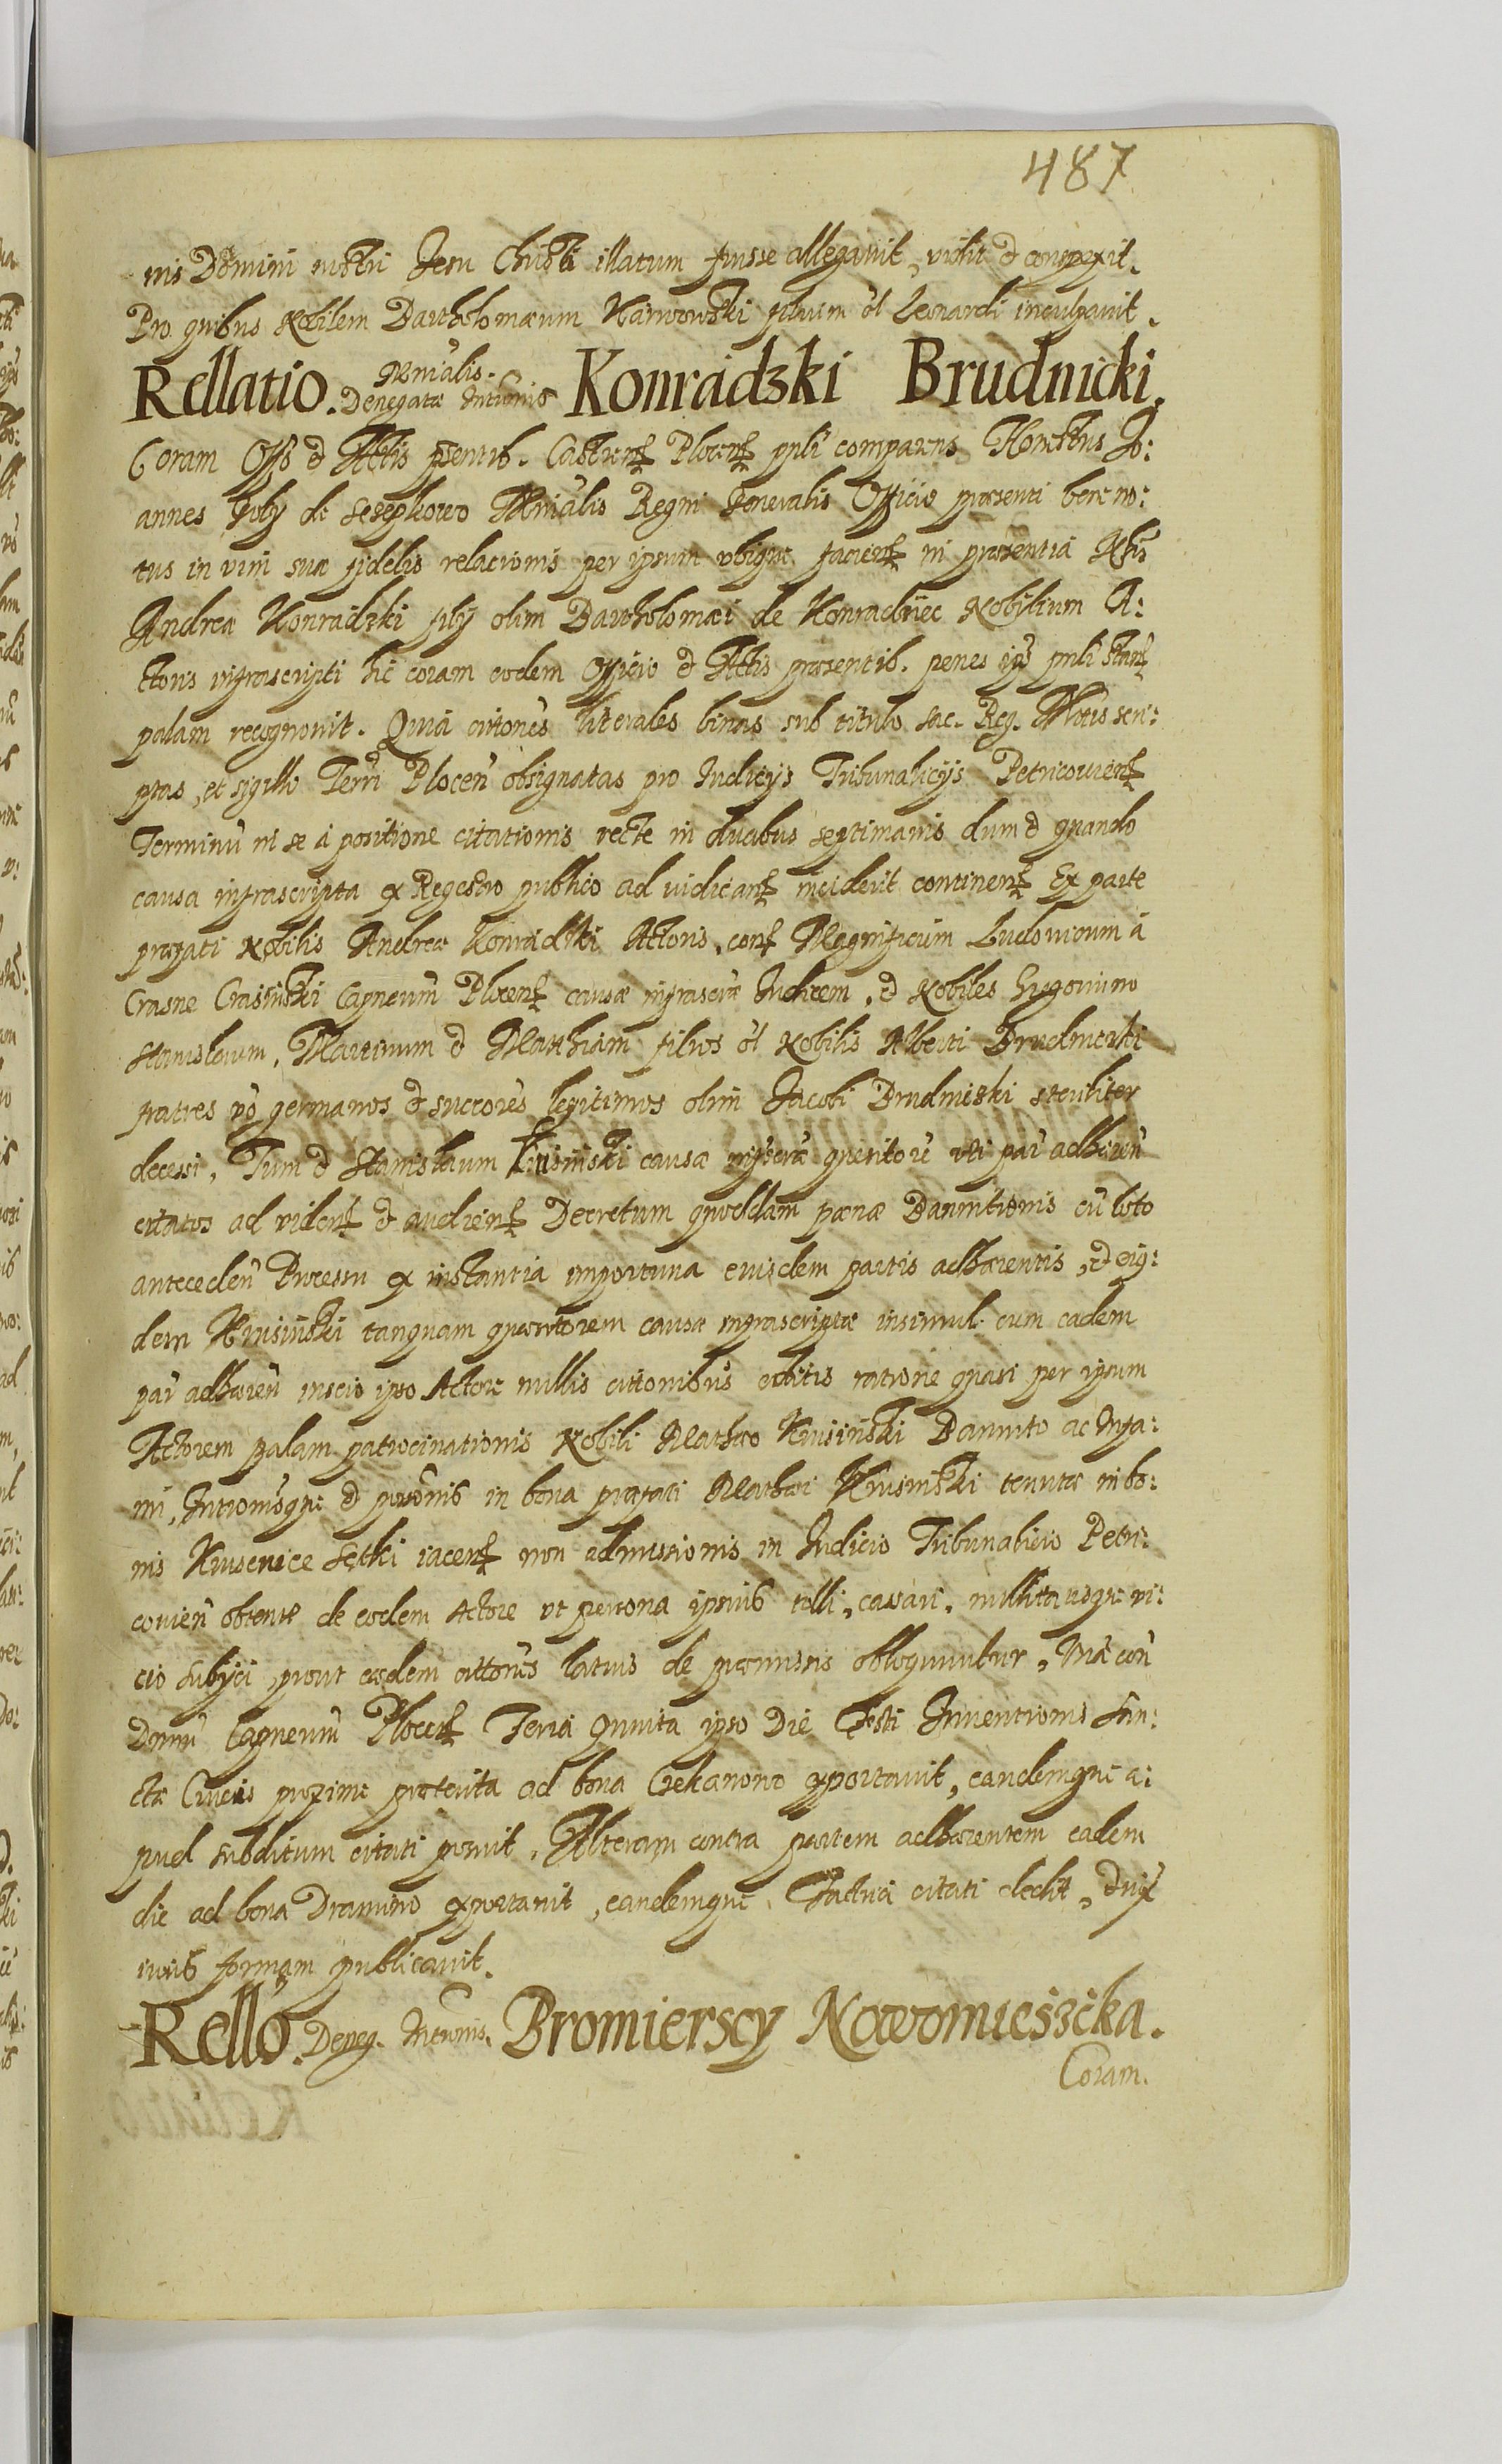 487
nis Domini nostri Jesu Christi illatum fuisse allegavit, vidit et conspexit.
Pro quibus Nobilem Bartholomæum Karwowski filium ol Leonardi inculpavit.
Rellatio. Mnialis. Denegatæ Intromis Konradzki Brudnicki.
Coram Offo et Actis psentib. Castren Plocen pnli comparens Honestus Jo:
annes July de Sesepkowo Mnialis Regni Generalis Officio præsenti bene no:
tus in vim suæ fidelis relacionis per ipsum ubique facien in præsentia Nlis
Andreæ Konradzki filij olim Bartholomæi de Konradziec Nobilium A:
ctoris infrascripti hic coram eodem Officio et Actis præsentib. penes ips pnli stan
palam recognovit. Quia citones literales binas sub titulo Sac. Reg. Mttis scri:
ptas, et sigillo Terri Plocen obsignatas pro Iudicijs Tribunalicijs Petricovien
Terminu in se a positione citationis recte in duabus septimanis dum et quando
causa infrascripta ex Regestro publico ad iudican inciderit continen Ex parte
præfati Nobilis Andreæ Konradzki Actoris, con Magnificum Ludovicum a
Crasne Crassinski Capneum Plocen causæ infrascræ Iudicem, et Nobiles
Stanislaum, Martinum et Mathiam filios ol Nobilis Alberti Brudnicki
fratres vo germanos et succores legitimos olim Jacobi Brudnicki steriliter
decessi, Tum et Stanislaum Krusinski causæ infrscræ quesitore uti par adhæren
citatos ad viden et audien Decretum quoddam pœnæ Bannitionis cu toto
anteceden Processu ex instantia importuna eiusdem partis adhærentis, et eiq:
dem Krusinski tanquam quæsitorem causæ infrascriptæ insimul cum eadem
par adhæren inscio ipso Actore nullis cittonibus editis ratione quasi per ipsum
Actorem palam patrocinationis Nobili Mathæo Krusinski Bannito ac Infa:
mi, Intromisque et in bona præfati Mathæi Krusinski tenutæ in bo:
nis Krusenice Setki iacen non admissionis in Iudicio Tribunalicio Petri:
covien obtente de eodem Actore ut persona ipsius tolli, cassari, nullitatisque vi:
cio subijci, prout eædem cittones latius de præmissis obloquuntur, Una con
Dnum Capneum Plocen Feria Quinta ipso Die Festi Inventionis San:
ctæ Crucis proxime præterita ad bona Czekanowo exportavit, eandemque a:
pud subditum citati posuit. Alteram contra partem adhærentem eadem
die ad bona Dramino exportavit, eandemque. Factori citati dedit, et
iuris formam publicavit.
Rello. Deneg. Intromis. Bromierscy Nowomieszcka.
Coram.